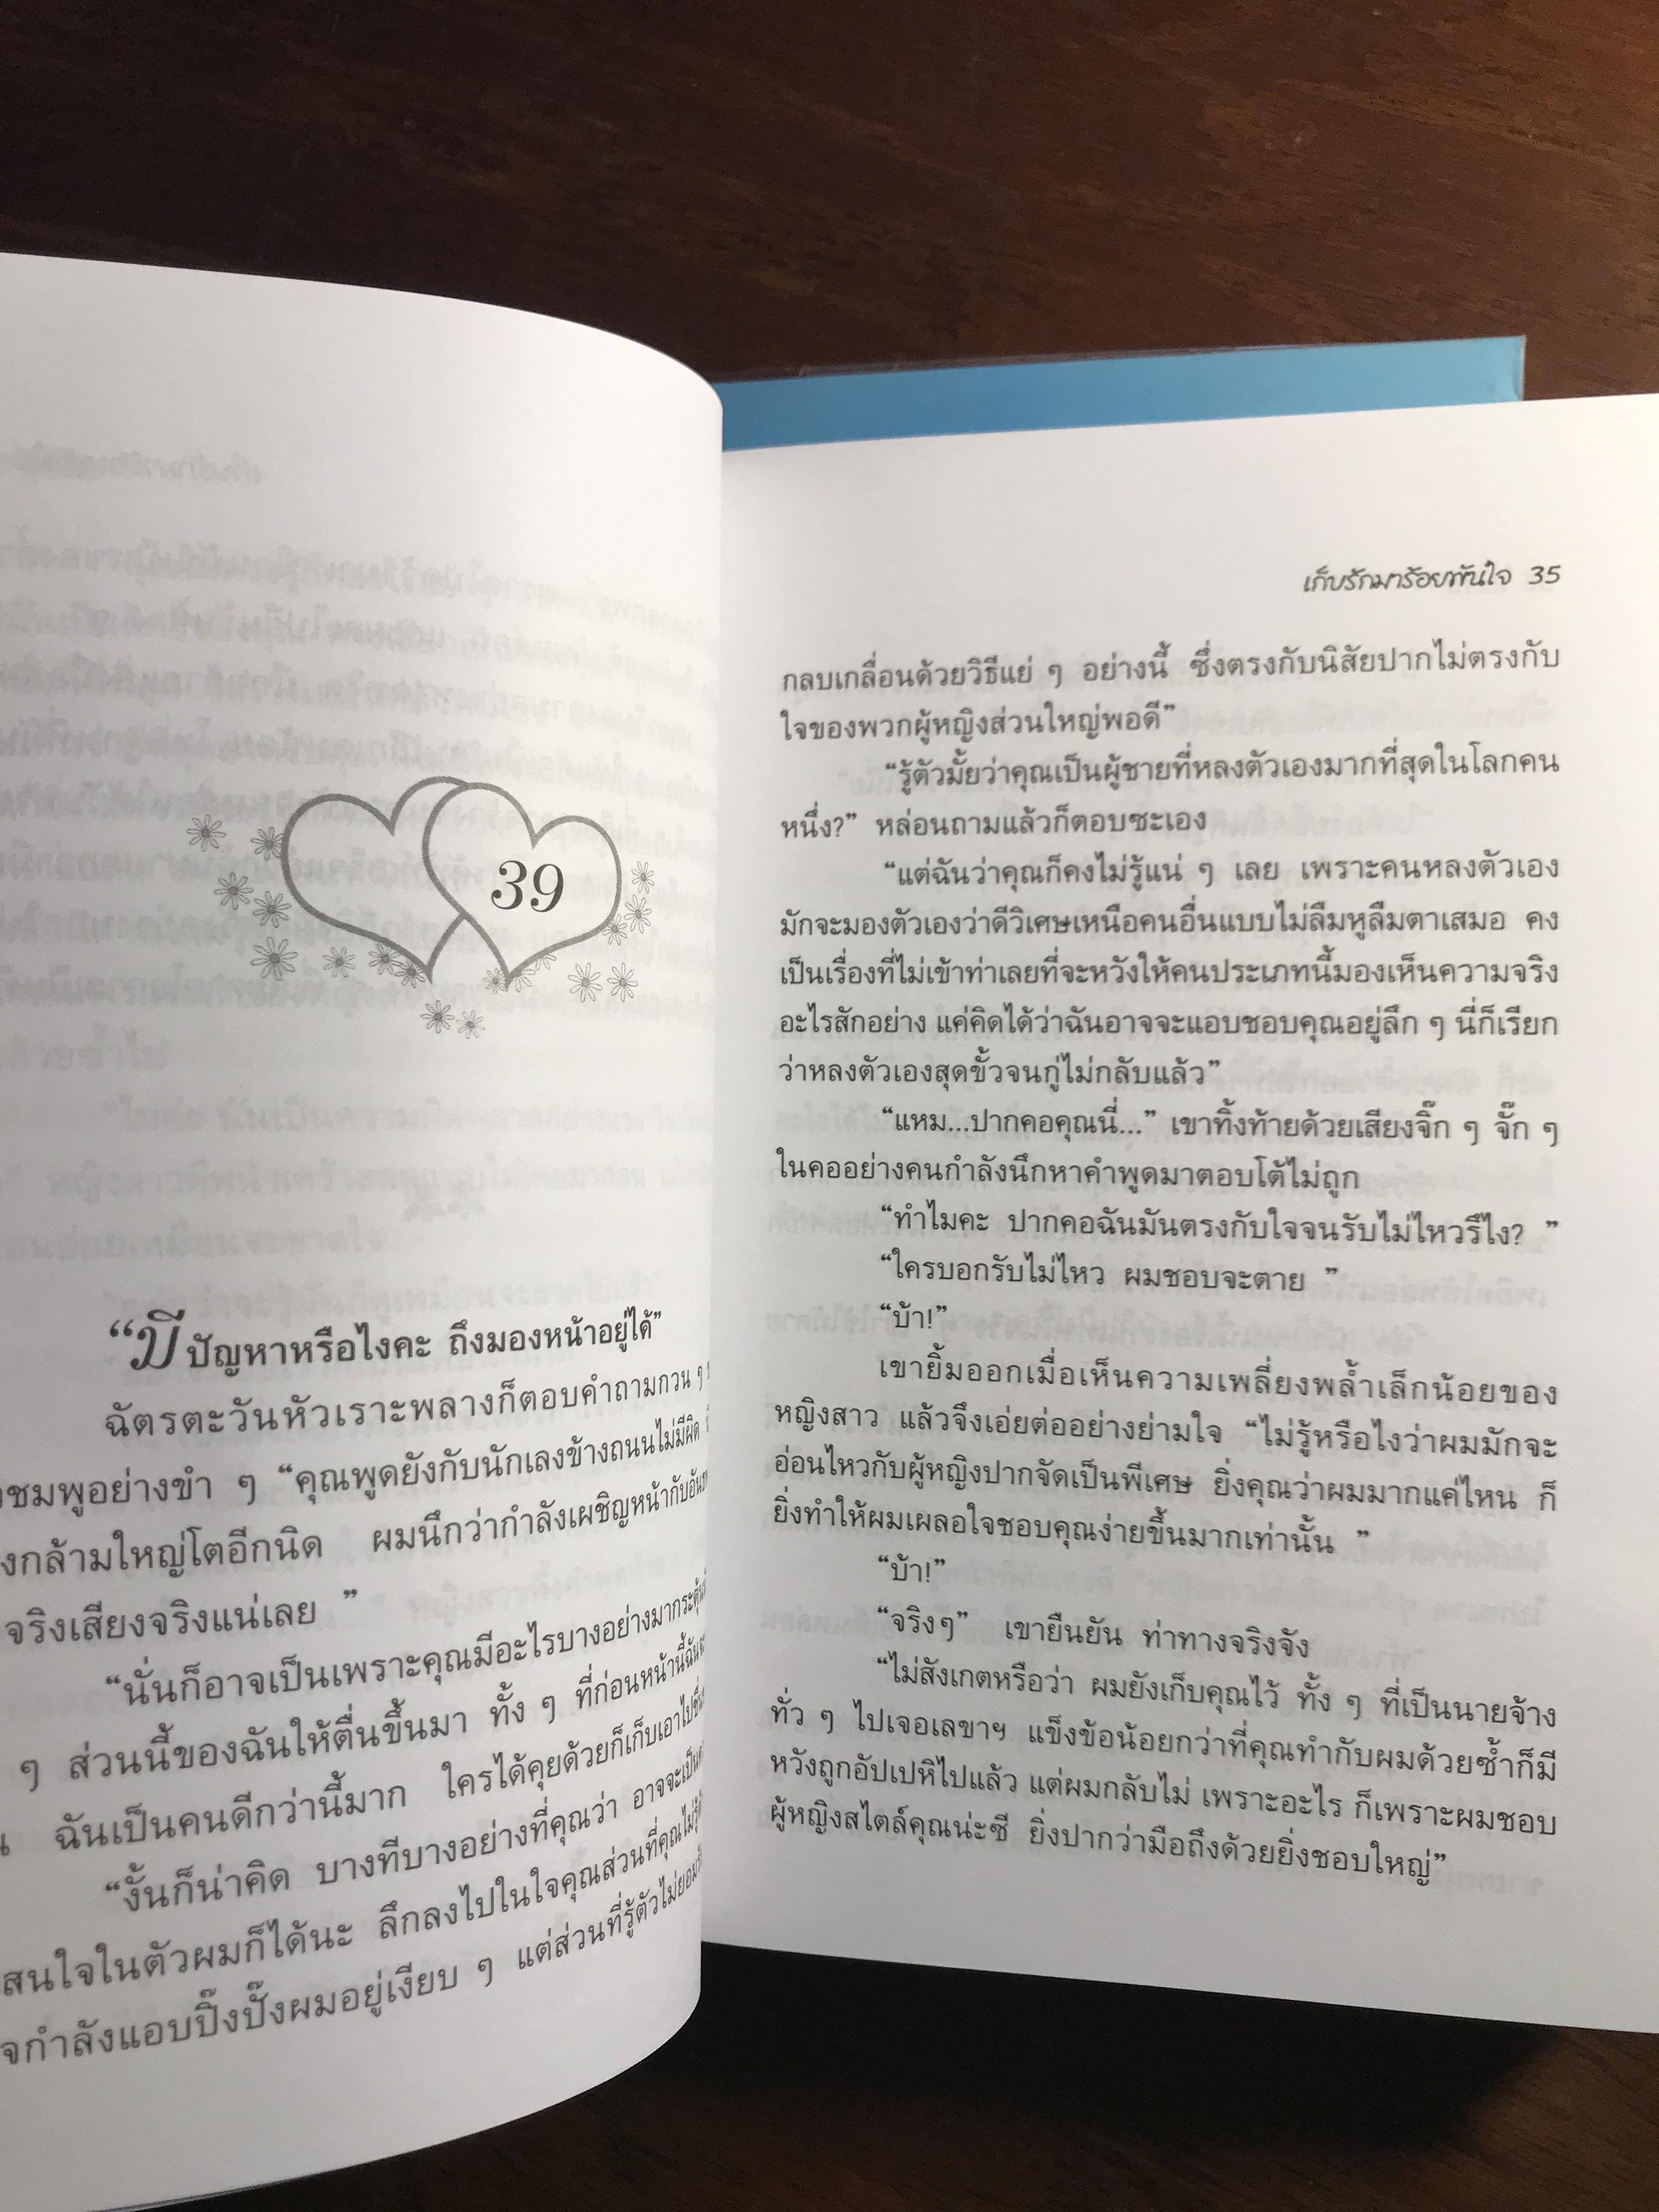 39
“มีปัญหาหรือไงคะ ถึงมองหน้าอยู่ได้”
ฉัตรตะวันหัวเราะพลางก็ตอบคำถามกวน ๆ
ชมพูอย่างขำ ๆ “คุณพูดยังกับนักเลงข้างถนนไม่มีผิด
กล้ามใหญ่โตอีกนิด ผมนึกว่ากำลังเผชิญหน้ากับ
จริงเสียงจริงแน่เลย ”
“นั่นก็อาจเป็นเพราะคุณมีอะไรบางอย่างมากระตุ้น
ๆ ส่วนนี้ของฉันให้ตื่นขึ้นมา ทั้ง ๆ ที่ก่อนหน้านี้
ฉันเป็นคนดีกว่านี้มาก ใครได้คุยด้วยก็เก็บเอาไป
“งั้นก็น่าคิด บางทีบางอย่างที่คุณว่า อาจจะเป็น
สนใจในตัวผมก็ได้นะ ลึกลงไปในใจคุณส่วนที่คุณไม่รู้
กำลังแอบปิ๊งปั๊งผมอยู่เงียบ ๆ แต่ส่วนที่รู้ตัวไม่ยอม
เก็บรักมาร้อยพันใจ 35
กลบเกลื่อนด้วยวิธีแย่ ๆ อย่างนี้ ซึ่งตรงกับนิสัยปากไม่ตรงกับ
ใจของพวกผู้หญิงส่วนใหญ่พอดี”
“รู้ตัวมั้ยว่าคุณเป็นผู้ชายที่หลงตัวเองมากที่สุดในโลกคน
หนึ่ง?” หล่อนถามแล้วก็ตอบซะเอง
“แต่ฉันว่าคุณก็คงไม่รู้แน่ ๆ เลย เพราะคนหลงตัวเอง
มักจะมองตัวเองว่าดีวิเศษเหนือคนอื่นแบบไม่ลืมหูลืมตาเสมอ คง
เป็นเรื่องที่ไม่เข้าท่าเลยที่จะหวังให้คนประเภทนี้มองเห็นความจริง
อะไรสักอย่าง แค่คิดได้ว่าฉันอาจจะแอบชอบคุณอยู่ลึก ๆ นี่ก็เรียก
ว่าหลงตัวเองสุดขั้วจนกู่ไม่กลับแล้ว”
“แหม...ปากคอคุณนี่...” เขาทิ้งท้ายด้วยเสียงจิ๊ก ๆ จั๊ก ๆ
ในคออย่างคนกำลังนึกหาคำพูดมาตอบโต้ไม่ถูก
“ทำไมคะ ปากคอฉันมันตรงกับใจจนรับไม่ไหวรึไง? ”
“ใครบอกรับไม่ไหว ผมชอบจะตาย ”
“บ้า!”
เขายิ้มออกเมื่อเห็นความเพลี่ยงพล้ำเล็กน้อยของ
หญิงสาว แล้วจึงเอ่ยต่ออย่างย่ามใจ “ไม่รู้หรือไงว่าผมมักจะ
อ่อนไหวกับผู้หญิงปากจัดเป็นพิเศษ ยิ่งคุณว่าผมมากแค่ไหน ก็
ยิ่งทำให้ผมเผลอใจชอบคุณง่ายขึ้นมากเท่านั้น ”
“บ้า!”
“จริงๆ” เขายืนยัน ท่าทางจริงจัง
“ไม่สังเกตหรือว่า ผมยังเก็บคุณไว้ ทั้ง ๆ ที่เป็นนายจ้าง
ทั่ว ๆ ไปเจอเลขาฯ แข็งข้อน้อยกว่าที่คุณทำกับผมด้วยซ้ำก็มี
หวังถูกอัปเปหิไปแล้ว แต่ผมกลับไม่ เพราะอะไร ก็เพราะผมชอบ
ผู้หญิงสไตล์คุณน่ะซี ยิ่งปากว่ามือถึงด้วยยิ่งชอบใหญ่”